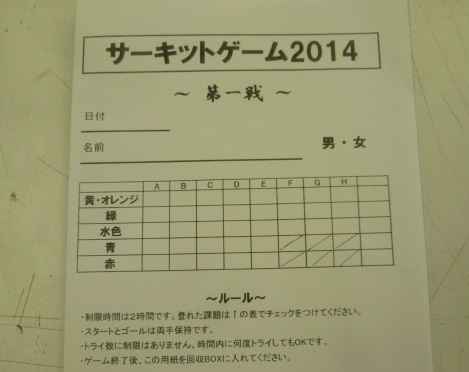 サーキットゲーム2014
～ 第一戦 ～
日付
名前 男・女
A B C D E F G H
黄・オレンジ
緑
水色
青
赤
～ルール～
・制限時間は2時間です。登れた課題は↑の表でチェックをつけてください。
・スタートとゴールは両手保持です。
・トライ数に制限はありません。時間内に何度トライしてもOKです。
・ゲーム終了後、この用紙を回収BOXに入れてください。